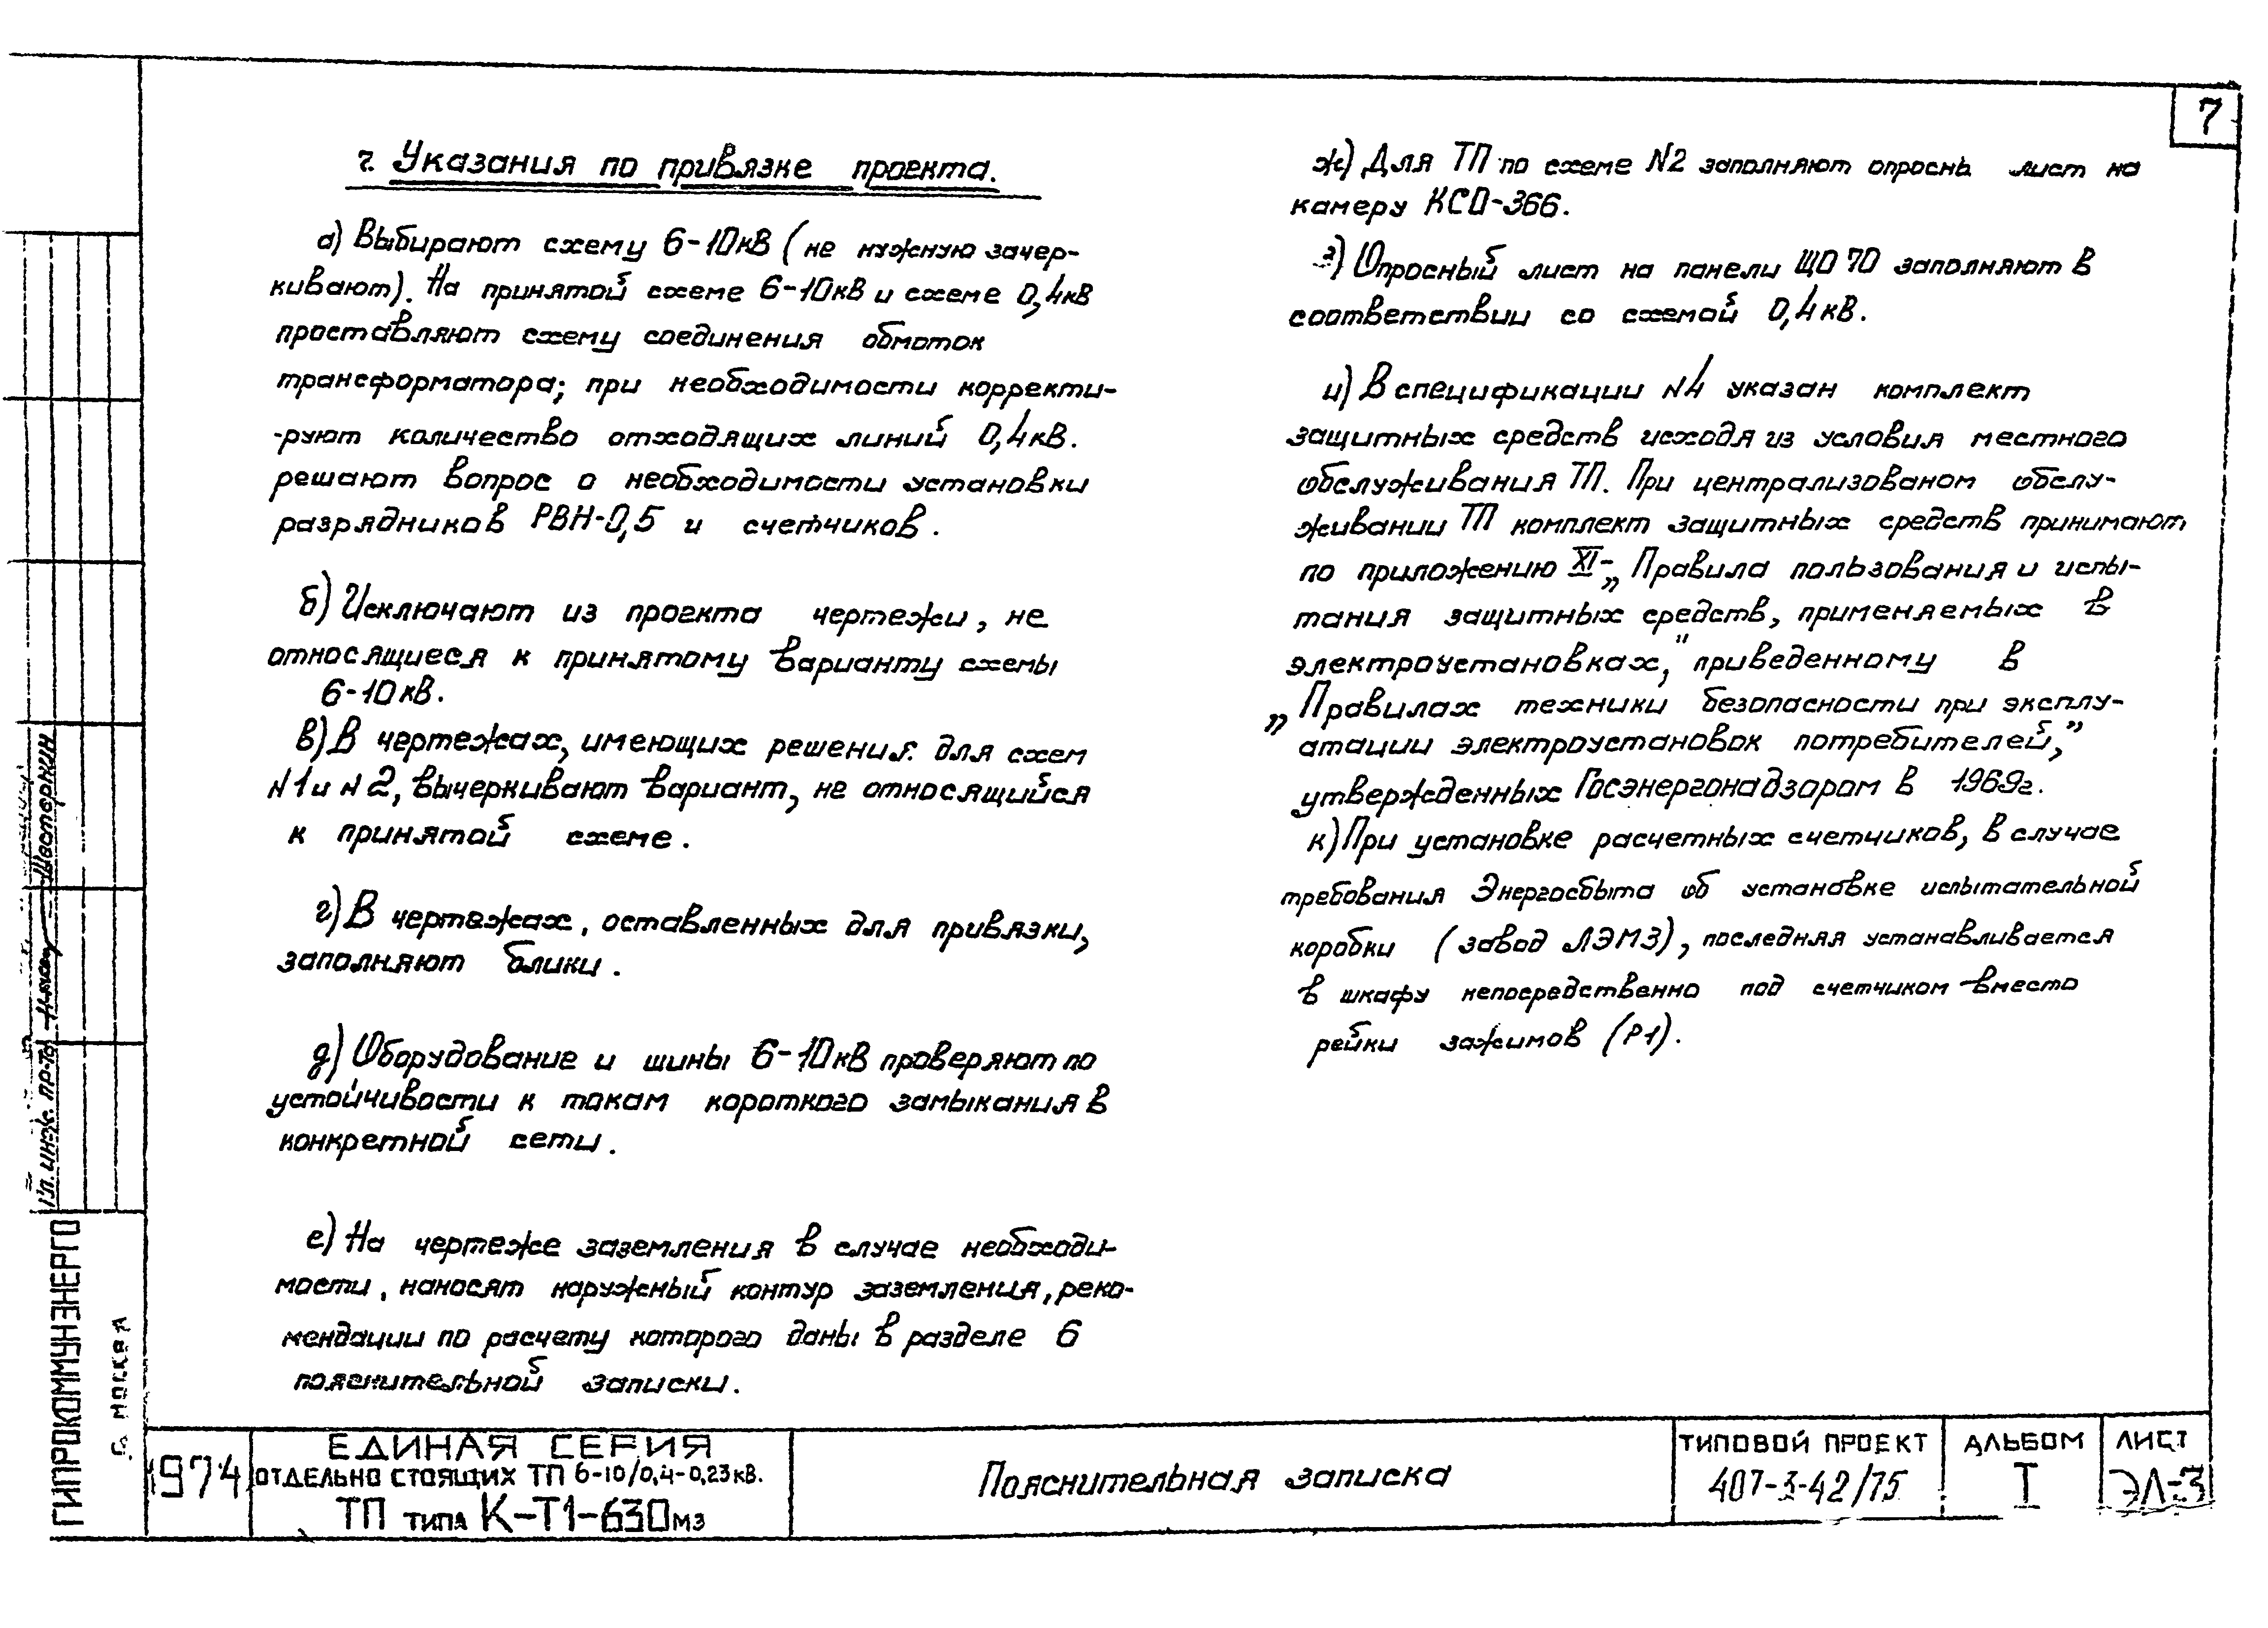 7
7. Указания по привязке проекта.
а) Выбирают схему 6-10кВ (не нужную зачер-
кивают). На принятой схеме 6-10кВ и схеме 0,4кВ
проставляют схему соединения обмоток
трансформатора; при необходимости корректи-
-руют количество отходящих линий 0,4кВ.
решают вопрос о необходимости установки
разрядников РВН-0,5 и счетчиков.
б) Исключают из проекта чертежи, не
относящиеся к принятому варианту схемы
6-10кВ.
в) В чертежах, имеющих решения для схем
N1 и N2, вычеркивают вариант, не относящийся
к принятой схеме.
г) В чертежах, оставленных для привязки,
заполняют блики.
д) Оборудование и шины 6-10кВ проверяют по
устойчивости к токам короткого замыкания в
конкретной сети.
е) На чертеже заземления в случае необходи-
мости, наносят наружный контур заземления, реко-
мендации по расчету которого даны в разделе 6
пояснительной записки.
ж) Для ТП по схеме N2 заполняют опросны лист на
камеру КСО-366.
з) Опросный лист на панели ЩО 70 заполняют в
соответствии со схемой 0,4кВ.
и) В спецификации N4 указан комплект
защитных средств исходя из условия местного
обслуживания ТП. При централизованом обслу-
живании ТП комплект защитных средств принимают
по приложению XI- „Правила пользования и испы-
тания защитных средств, применяемых в
электроустановках," приведенному в
„Правилах техники безопасности при эксплу-
атации электроустановок потребителей,"
утвержденных Госэнергонадзором в 1969г.
к) При установке расчетных счетчиков, в случае
требования Энергосбыта об установке испытательной
коробки (завод ЛЭМЗ), последняя устанавливается
в шкафу непосредственно под счетчиком вместо
рейки зажимов (Р1).
Гл. инж. пр-та Шестеркин
ГИПРОКОММУНЭНЕРГО
г. МОСКВА
1974
ЕДИНАЯ СЕРИЯ
ОТДЕЛЬНО СТОЯЩИХ ТП 6-10/0,4-0,23кВ.
ТП типа К-Т1-630мз
Пояснительная записка
ТИПОВОЙ ПРОЕКТ
407-3-42/75
АЛЬБОМ
I
ЛИСТ
ЭЛ-3